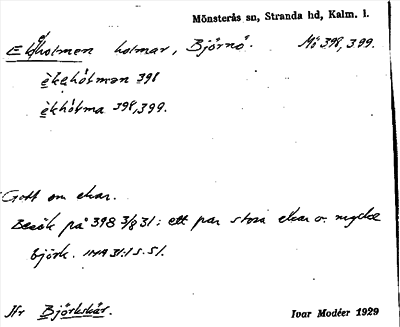 Mönsterås sn, Stranda hd, Kalm. l.
Ekholmen holmar, Björnö. Mö 398, 399.
èkǝhólmǝn 398
èkhólma 398,399.
Gott om ekar.
Besök på 398 3/8 31: ett par stora ekar o. mycket
björk.
Jfr Björkskär.
Ivar Modéer 1929